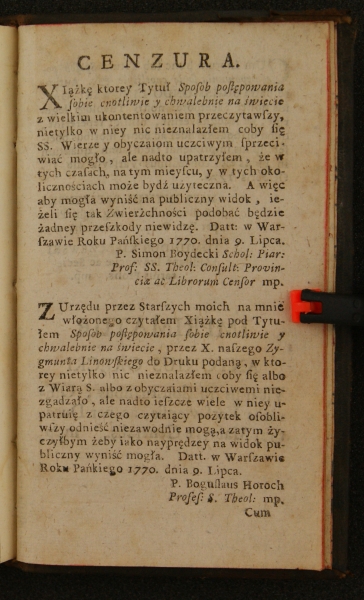 CENZURA.
XIążkę ktorey Tytuł Sposob postępowania
sobie cnotliwie y chwalebnie na świecie
z wielkim ukontentowaniem przeczytawszy,
nietylko w niey nic nieznalazłem coby się
SS. Wierze y obyczaiom uczciwym sprzeci-
wiać mogło, ale nadto upatrzyłem, że w
tych czasach, na tym mieyscu, y w tych oko-
licznościach może bydź uzyteczna. A więc
aby mogła wyniść na publiczny widok, ie-
żeli się tak Zwierżchności podobać będzie
żadney przeszkody niewidzę. Datt: w War-
szawie Roku Pańskiego 1770. dnia 9. Lipca.
P. Simon Boydecki Schol: Piar:
Prof: SS. Theol: Consult: Provin-
ciæ ac Librorum Censor mp.
Z Urzędu przez Starszych moich na mnie
włożonego czytałem Xiążkę pod Tytu-
łem Sposob postępowania sobie cnotliwie y
chwalebnie na świecie, przez X. naszego Zy-
gmunta Linowskiego do Druku podaną, w kto-
rey nietylko nic nieznalazłem coby się albo
z Wiarą S. albo z obyczaiami uczciwemi nie-
zgadzało, ale nadto ieszcze wiele w niey u-
patruię z czego czytaiący pożytek osobli-
wszy odnieść niezawodnie mogą, a zatym ży-
czyłbym żeby iako nayprędzey na widok pu-
bliczny wyniść mogła. Datt. w Warszawie
Roku Pańkiego 1770. dnia 9. Lipca.
P. Boguslaus Horoch
Profes: S. Theol: mp.
Cum